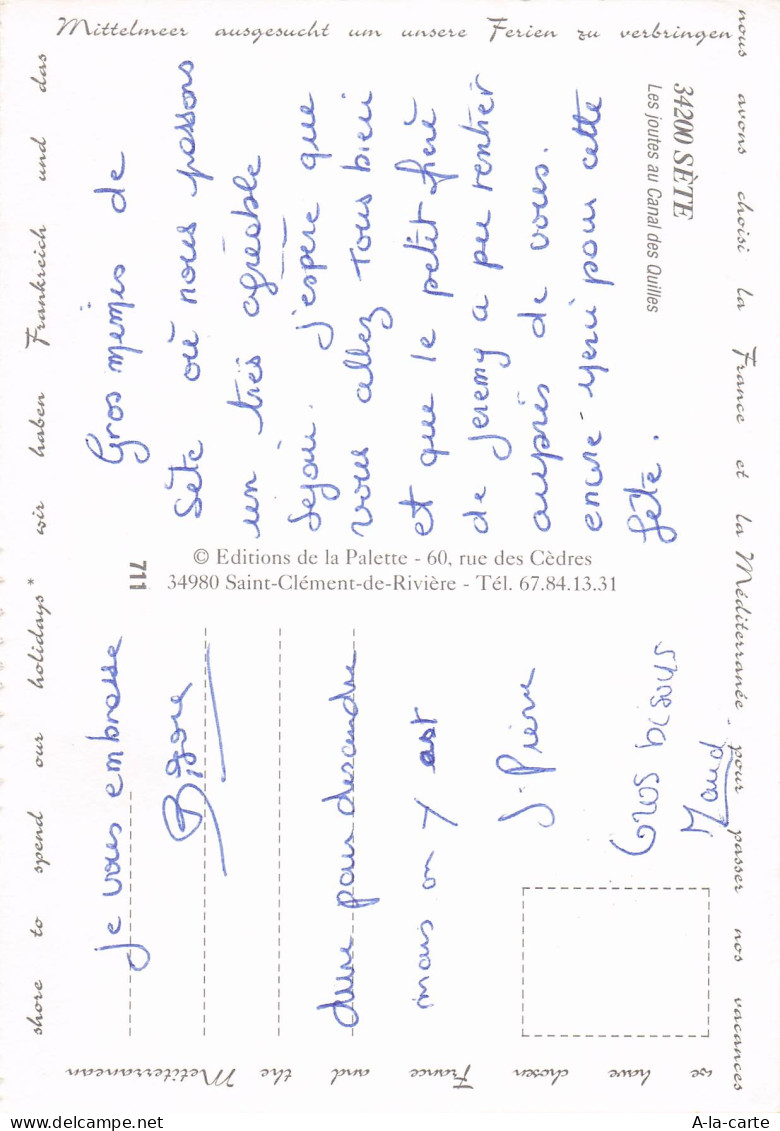 nous avons choisi la France et la Méditerranée pour passer nos vacances
we have chosen France and the Metiterranean
shore to spend our holidays* wir haben Frankreich und das
Mittelmeer ausgesucht um unsere Ferien zu verbringen
Gros mimis de
Sète où nous passons
un très agréable
Séjour. j'espère que
vous allez tous bien
et que le petit frère
de Jeremy a pu rentrer
auprès de vous.
encore merci pour cette
fête.
34200 SÈTE
Les joutes au Canal des Quilles
711
© Editions de la Palette - 60, rue des Cèdres
34980 Saint-Clément-de-Rivière - Tél. 67.84.13.31
je vous embrasse
dure pour descendre
mais on y est
J. Pierre
Gros bisous
Maud
A-la-carte